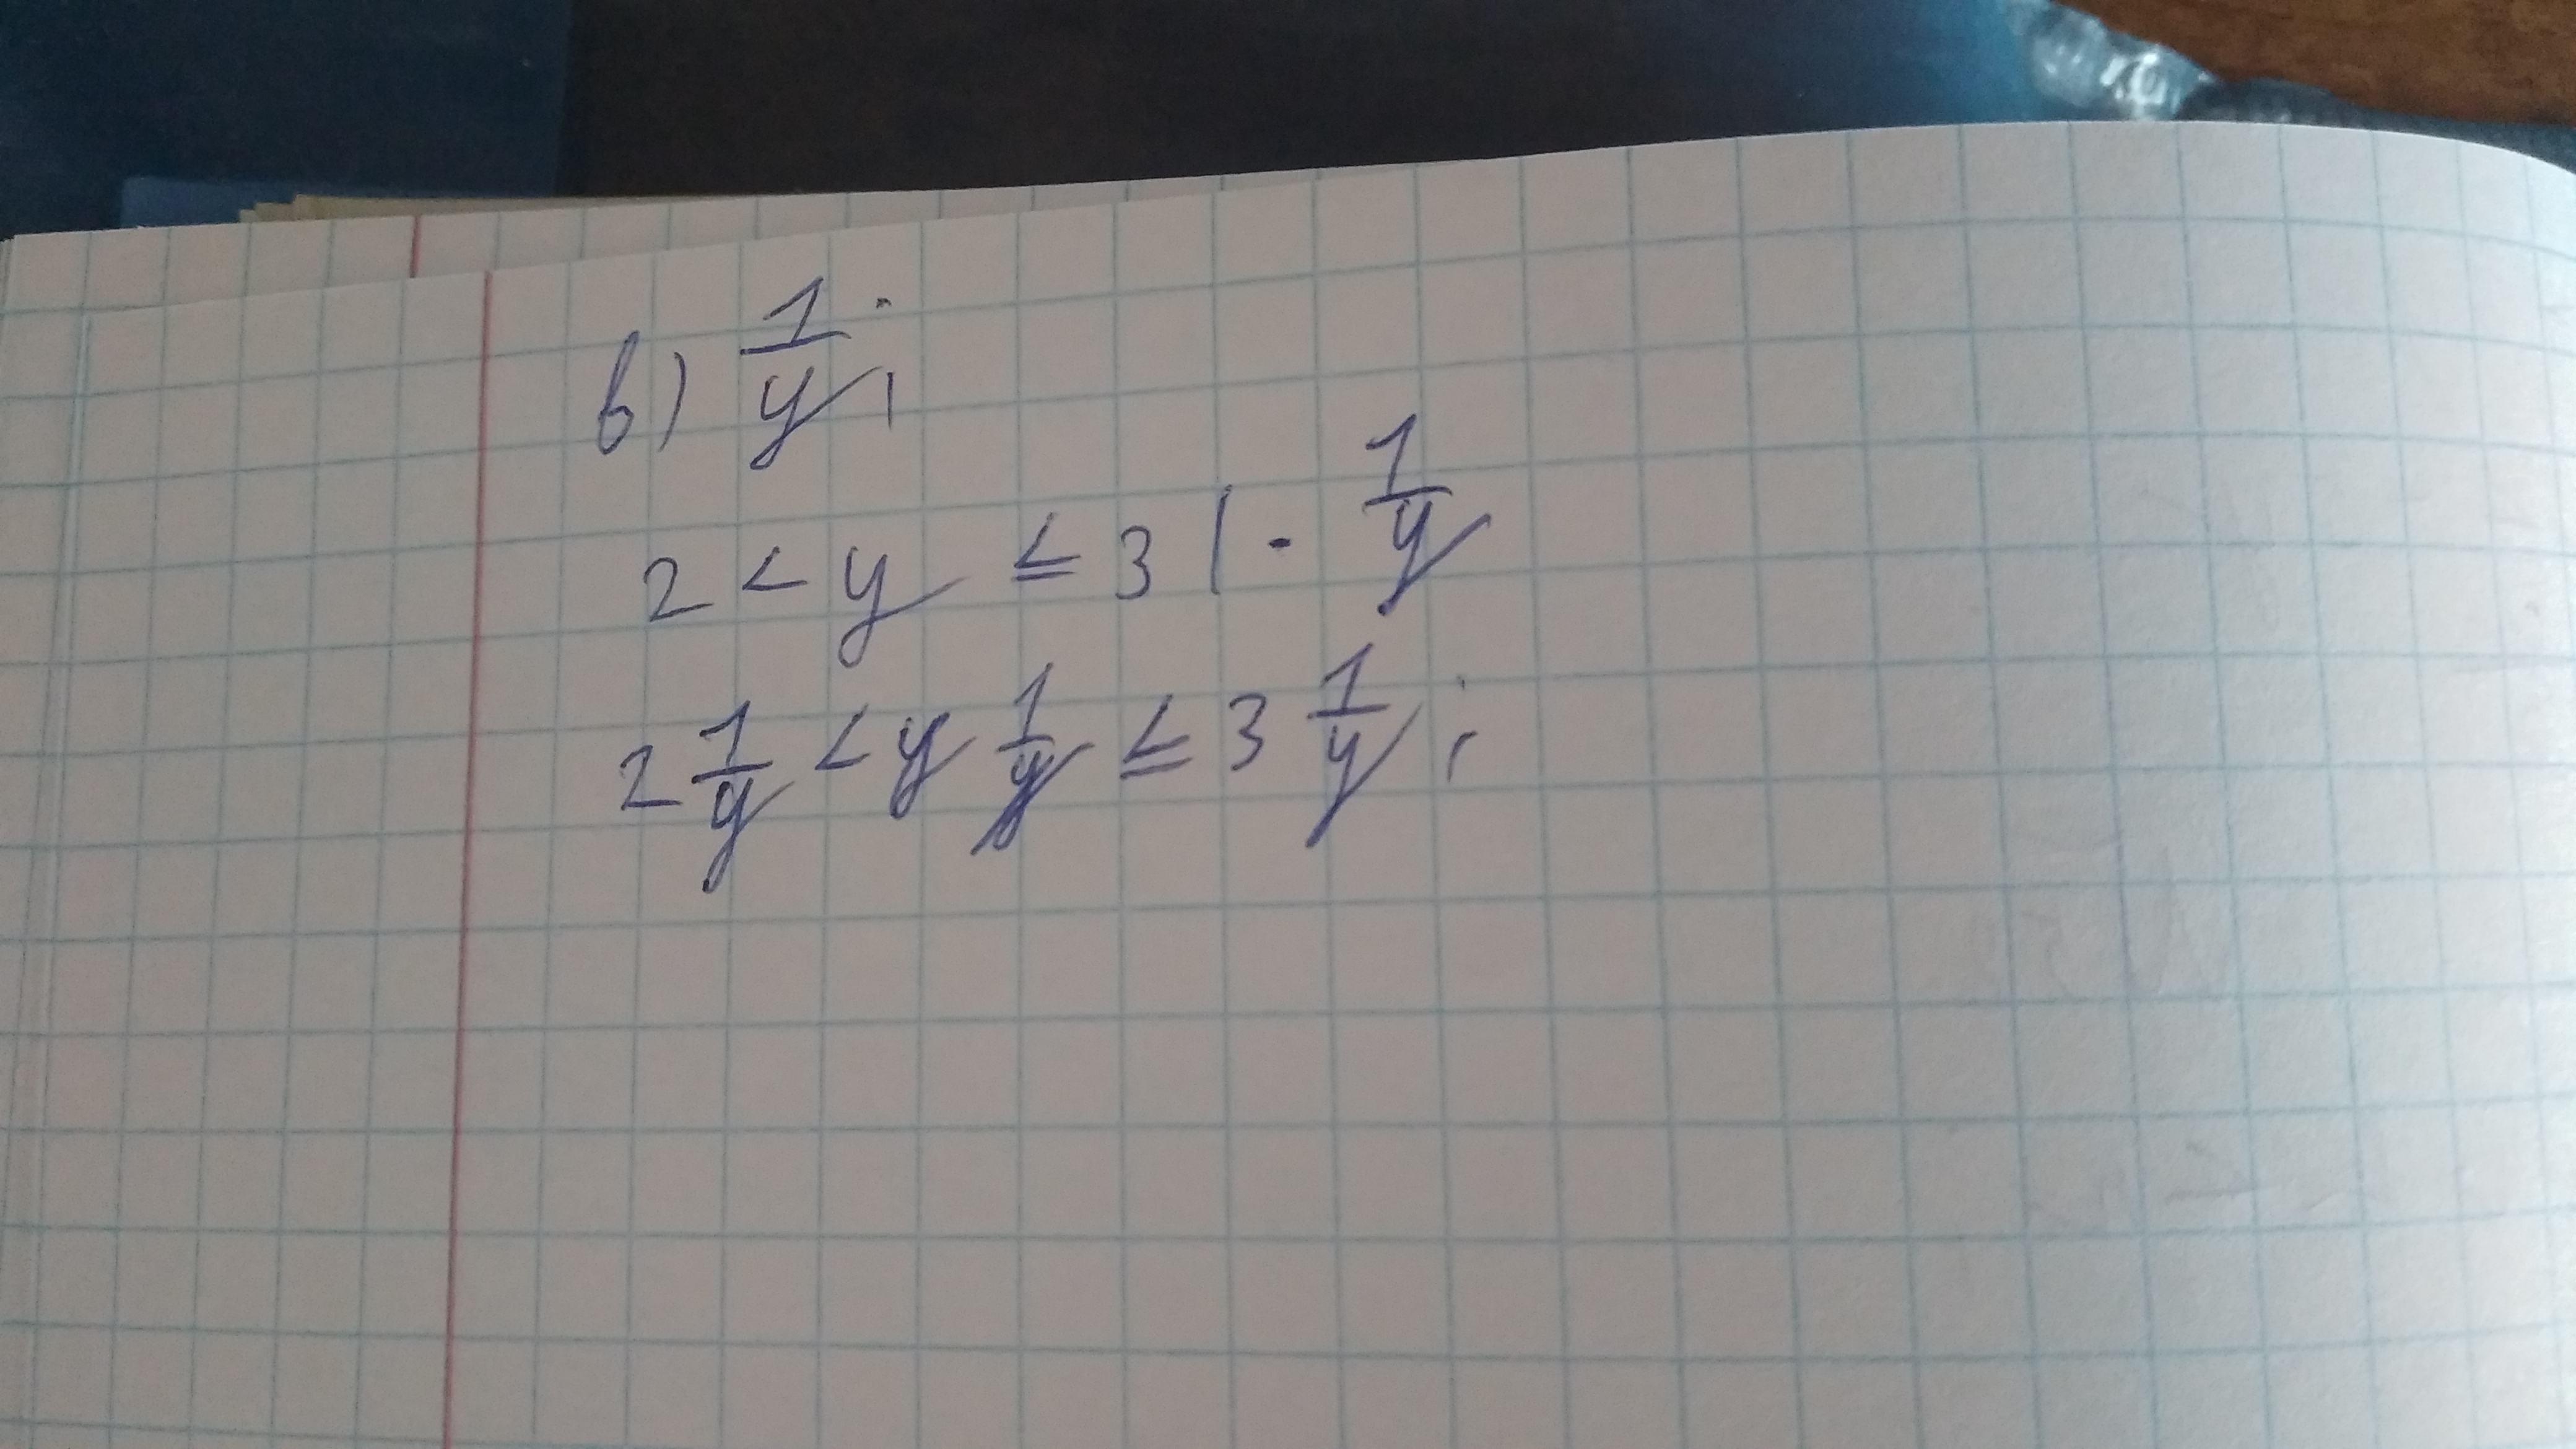 в) 1/y;
2 < y ≤ 3 | · 1/y
2 1/y < y 1/y ≤ 3 1/y;